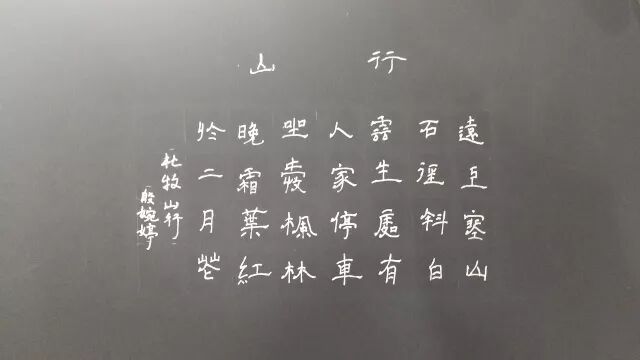 山行
遠上寒山
石徑斜白
雲生處有
人家停車
坐愛楓林
晚霜葉紅
於二月花
杜牧山行
殷婉婷